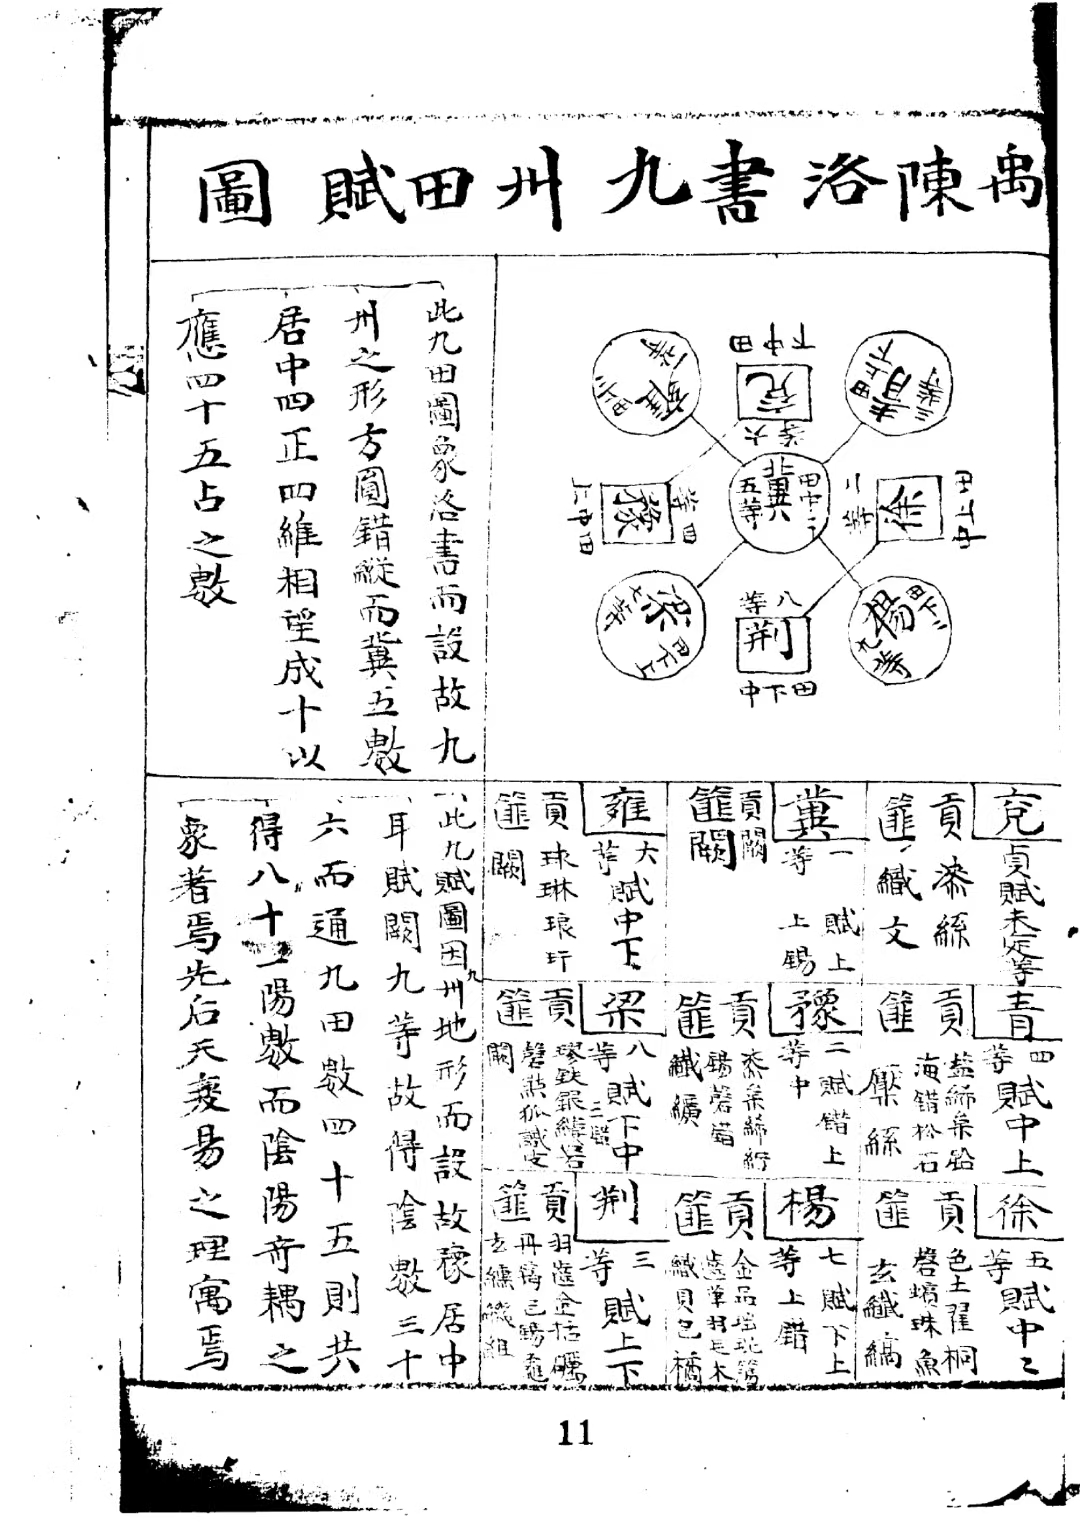 禹陳洛書九州田賦圖
此九田圖象洛書而設故九
州之形方圓錯縱而冀五數
居中四正四維相望成十以
應四十五占之數
青
田上下
三等
兗
田中下
六等
雍
一等
徐
田上中
二等
冀
北
田中中
五等
豫
田中上
四等
楊
田下下
九等
荆
田下中
八等
梁
田下上
七等
兗
貞賦未定等
貢漆絲
篚織文
冀
一等
賦上上錯
貢闕
篚闕
雍
六等賦中下
貢球琳琅玕
篚闕
青
四等賦中上
貢
鹽絺枲鉛
海錯松石
篚
檿絲
豫
二等賦錯上中
貢
漆枲絺紵
錫磬錯
篚
纖纊
梁
八等賦下中三錯
貢
璆鉄銀鏤砮
磬熊狐織皮
篚
闕
徐
五等賦中〻
貢
色土翟桐
磬蠙珠魚
篚
玄纖縞
楊
七等賦下上上錯
貢
金品瑶琨篠
齒革羽毛木
篚
織貝包橘
荆
三等賦上下
貢
羽齒金栝礪
篚
玄纁璣組
此九賦圖因九州地形而設故豫居中
耳賦闕九等故得陰數三十
六而通九田數四十五則共
得八十一陽數而陰陽奇耦之
象著焉先后天羲易之理寓焉
11